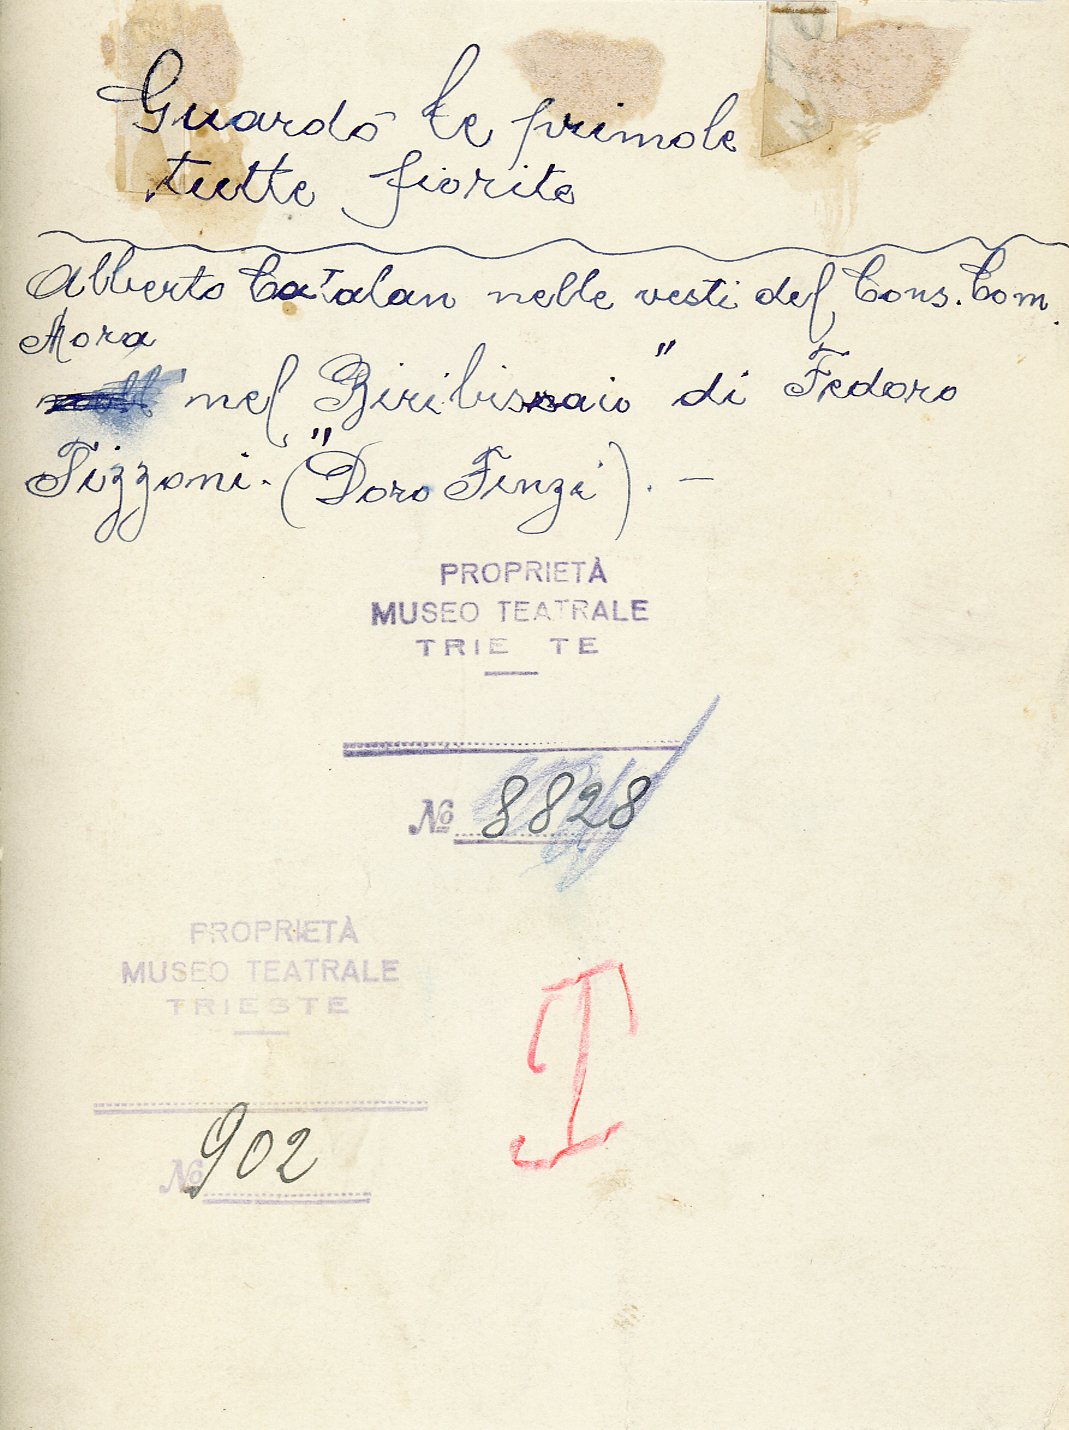 Guardó le primole
tutte fiorite
Alberto Catalan nelle vesti del Cons. Com.
Mora
nel "Biribissaio" di Fedoro
Tizzoni. ("Doro Finzi"). —
PROPRIETÀ
MUSEO TEATRALE
TRIE TE
No 8828
PROPRIETÀ
MUSEO TEATRALE
TRIESTE
No 902
I